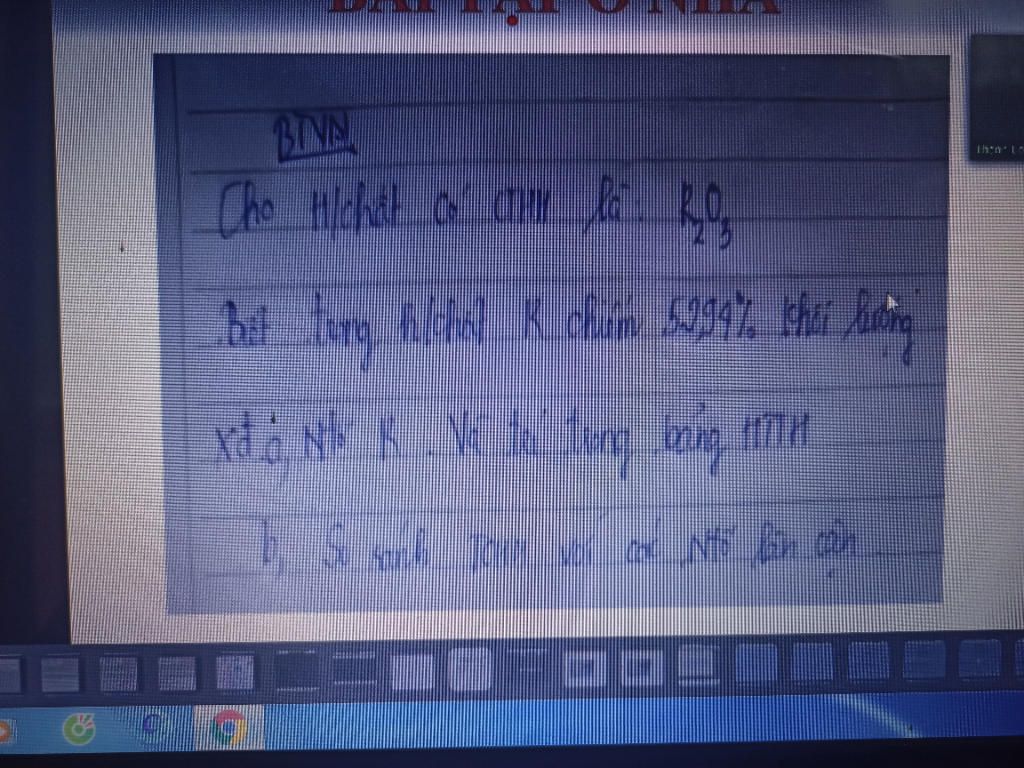 BÀI TẬP Ở NHÀ
BTVN
Cho H/chất có CTHH là: R2O3
Biết trong h/chất R chiếm 52,94% khối lượng
Xđ a, Ntố R. Vị trí trong bảng HTTH
b, So sánh TCHH với các Ntố lân cận